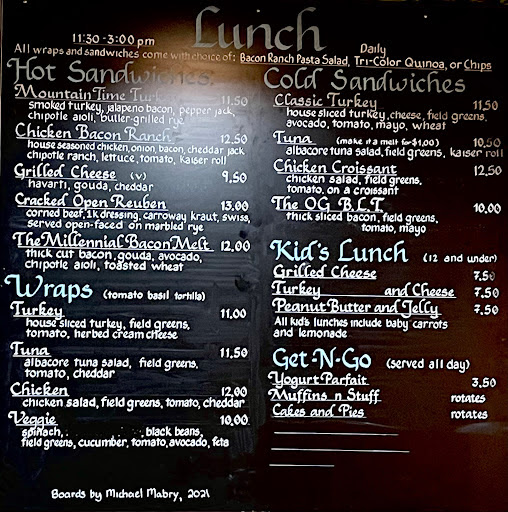 Lunch
11:30 - 3:00 pm
Daily
All wraps and sandwiches come with choice of: Bacon Ranch Pasta Salad, Tri-Color Quinoa, or Chips
Hot Sandwiches
Mountain Time Turkey 11.50
smoked turkey, jalapeno bacon, pepper jack,
chipotle aioli, butter-grilled rye
Chicken Bacon Ranch 12.50
house seasoned chicken, onion, bacon, cheddar jack
chipotle ranch, lettuce, tomato, kaiser roll
Grilled Cheese (v) 9.50
havarti, gouda, cheddar
Cracked Open Reuben 13.00
corned beef, 1k dressing, carroway kraut, swiss,
served open-faced on marbled rye
The Millennial Bacon Melt 12.00
thick cut bacon, gouda, avocado,
chipotle aioli, toasted wheat
Wraps (tomato basil tortilla)
Turkey 11.00
house sliced turkey, field greens,
tomato, herbed cream cheese
Tuna 11.50
albacore tuna salad, field greens,
tomato, cheddar
Chicken 12.00
chicken salad, field greens, tomato, cheddar
Veggie 10.00
spinach, black beans,
field greens, cucumber, tomato, avocado, feta
Boards by Michael Mabry, 2021
Cold Sandwiches
Classic Turkey 11.50
house sliced turkey, cheese, field greens,
avocado, tomato, mayo, wheat
Tuna (make it a melt for $1.00) 10.50
albacore tuna salad, field greens, kaiser roll
Chicken Croissant 12.50
chicken salad, field greens,
tomato, on a croissant
The OG B.L.T. 10.00
thick sliced bacon, field greens,
tomato, mayo
Kid's Lunch (12 and under)
Grilled Cheese 7.50
Turkey and Cheese 7.50
Peanut Butter and Jelly 7.50
All kid's lunches include baby carrots
and lemonade
Get-N-Go (served all day)
Yogurt Parfait 3.50
Muffins n Stuff rotates
Cakes and Pies rotates